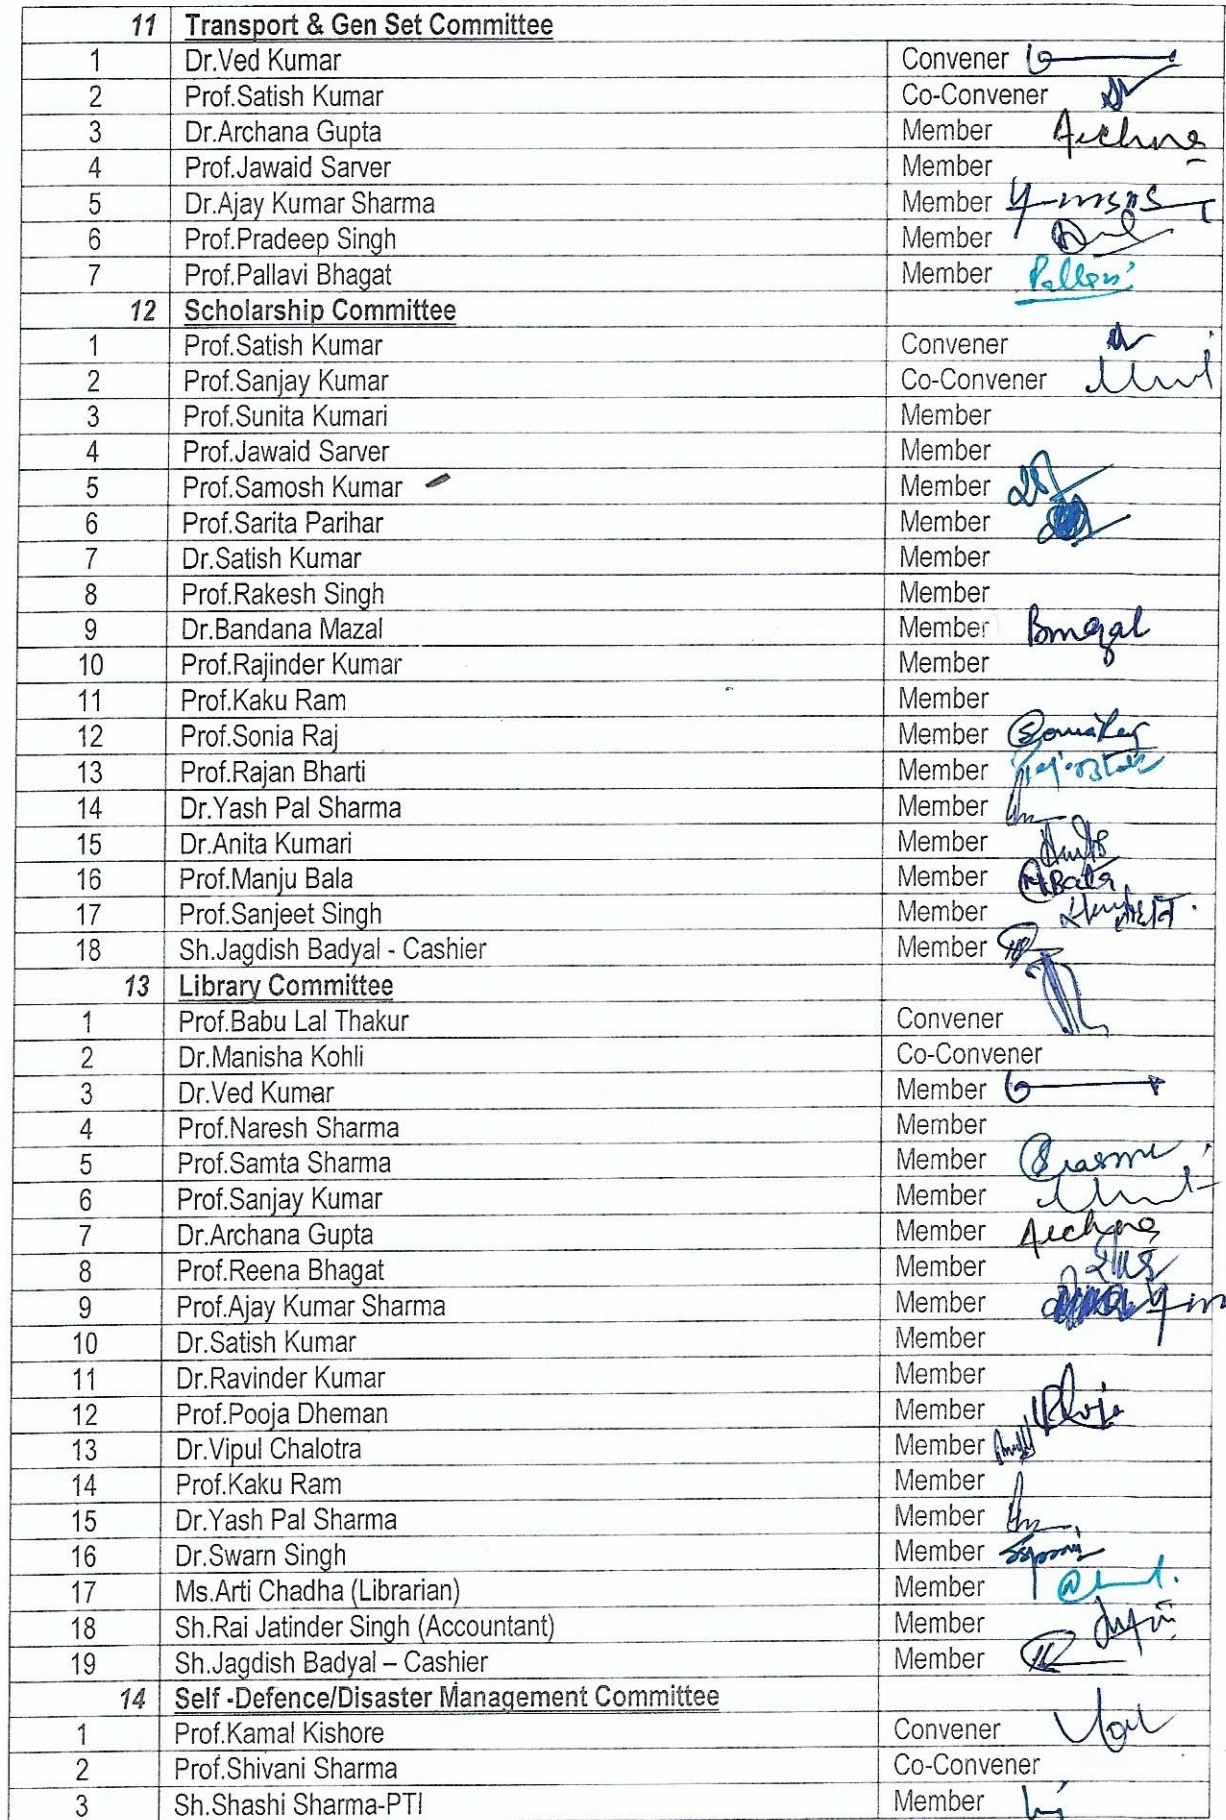 11 Transport & Gen Set Committee
1 Dr.Ved Kumar Convener
2 Prof.Satish Kumar Co-Convener
3 Dr.Archana Gupta Member Archna
4 Prof.Jawaid Sarver Member
5 Dr.Ajay Kumar Sharma Member
6 Prof.Pradeep Singh Member
7 Prof.Pallavi Bhagat Member Pallavi
12 Scholarship Committee
1 Prof.Satish Kumar Convener
2 Prof.Sanjay Kumar Co-Convener
3 Prof.Sunita Kumari Member
4 Prof.Jawaid Sarver Member
5 Prof.Samosh Kumar Member
6 Prof.Sarita Parihar Member
7 Dr.Satish Kumar Member
8 Prof.Rakesh Singh Member
9 Dr.Bandana Mazal Member
10 Prof.Rajinder Kumar Member
11 Prof.Kaku Ram Member
12 Prof.Sonia Raj Member Sonia Raj
13 Prof.Rajan Bharti Member
14 Dr.Yash Pal Sharma Member
15 Dr.Anita Kumari Member
16 Prof.Manju Bala Member MBala
17 Prof.Sanjeet Singh Member
18 Sh.Jagdish Badyal - Cashier Member
13 Library Committee
1 Prof.Babu Lal Thakur Convener
2 Dr.Manisha Kohli Co-Convener
3 Dr.Ved Kumar Member
4 Prof.Naresh Sharma Member
5 Prof.Samta Sharma Member
6 Prof.Sanjay Kumar Member
7 Dr.Archana Gupta Member Archna
8 Prof.Reena Bhagat Member
9 Prof.Ajay Kumar Sharma Member
10 Dr.Satish Kumar Member
11 Dr.Ravinder Kumar Member
12 Prof.Pooja Dheman Member Pooja
13 Dr.Vipul Chalotra Member
14 Prof.Kaku Ram Member
15 Dr.Yash Pal Sharma Member
16 Dr.Swarn Singh Member
17 Ms.Arti Chadha (Librarian) Member
18 Sh.Rai Jatinder Singh (Accountant) Member
19 Sh.Jagdish Badyal – Cashier Member
14 Self -Defence/Disaster Management Committee
1 Prof.Kamal Kishore Convener
2 Prof.Shivani Sharma Co-Convener
3 Sh.Shashi Sharma-PTI Member